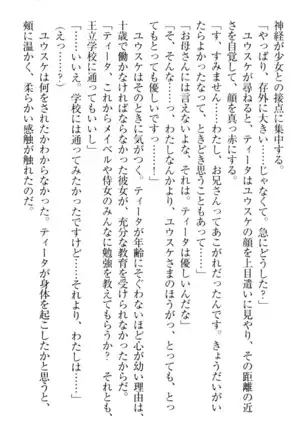 神経が少女との接点に集中する。
「やっぱり、存外に大きい……じゃなくて、急にどうした？」
ユウスケが尋ねると、ティータはユウスケの顔を上目遣いに見やり、その距離の近
さを自覚して、顔を真っ赤にする。
「す、すみません……わたし、お兄さんってあこがれだったんです。きょうだいがい
たらよかったなって、ときどき思うこともあって……」
「お母さんには言えないよな、それは。ティータは優しいんだな」
「そ、そんな……っ、わたしなんかより、ユウスケさまのほうがっ、とっても、とっ
てもっ、優しいですっ……！」
ユウスケはそのときに気がつく。ティータが年齢にそぐわないほど心が幼い理由は、
十歳で働かなければならなかった彼女が、充分な教育を受けられなかったためだ。
「ティータ、これからメイベルや侍女のみんなに勉強を教えてもらうか？　それとも、
王立学校に通ってもいいし」
「……いいえ、学校には通ってみたかったですけど……それより、わたしは……」
（えっ……？）
ユウスケは何をされたかわからなかった。ティータが身体を起こしたかと思うと、
頬に温かく、柔らかい感触が触れたのだ。